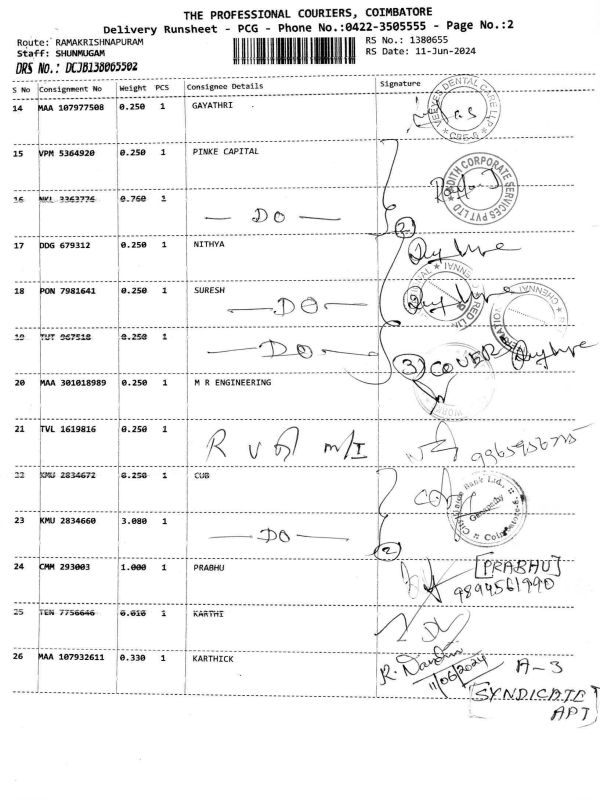 THE PROFESSIONAL COURIERS, COIMBATORE
Delivery Runsheet - PCG - Phone No.:0422-3505555 - Page No.:2
Route: RAMAKRISHNAPURAM
RS No.: 1380655
Staff: SHUNMUGAM
RS Date: 11-Jun-2024
DRS No.: DCJB138065502
S No Consignment No Weight PCS Consignee Details Signature
14 MAA 107977508 0.250 1 GAYATHRI
15 VPM 5364920 0.250 1 PINKE CAPITAL
16 NKL 3363776 0.760 1
— DO —
2
17 DDG 679312 0.250 1 NITHYA
18 PON 7981641 0.250 1 SURESH
— DO —
19 TUT 967518 0.250 1
— DO —
3 COVER
20 MAA 301018989 0.250 1 M R ENGINEERING
21 TVL 1619816 0.250 1
22 KMU 2834672 0.250 1 CUB
23 KMU 2834660 3.080 1
— DO —
2
24 CMM 293003 1.000 1 PRABHU
[PRABHU]
9894561990
25 TEN 7756646 0.010 1 KARTHI
26 MAA 107932611 0.330 1 KARTHICK
11/06/2024
A-3
[SYNDICATE
APT]